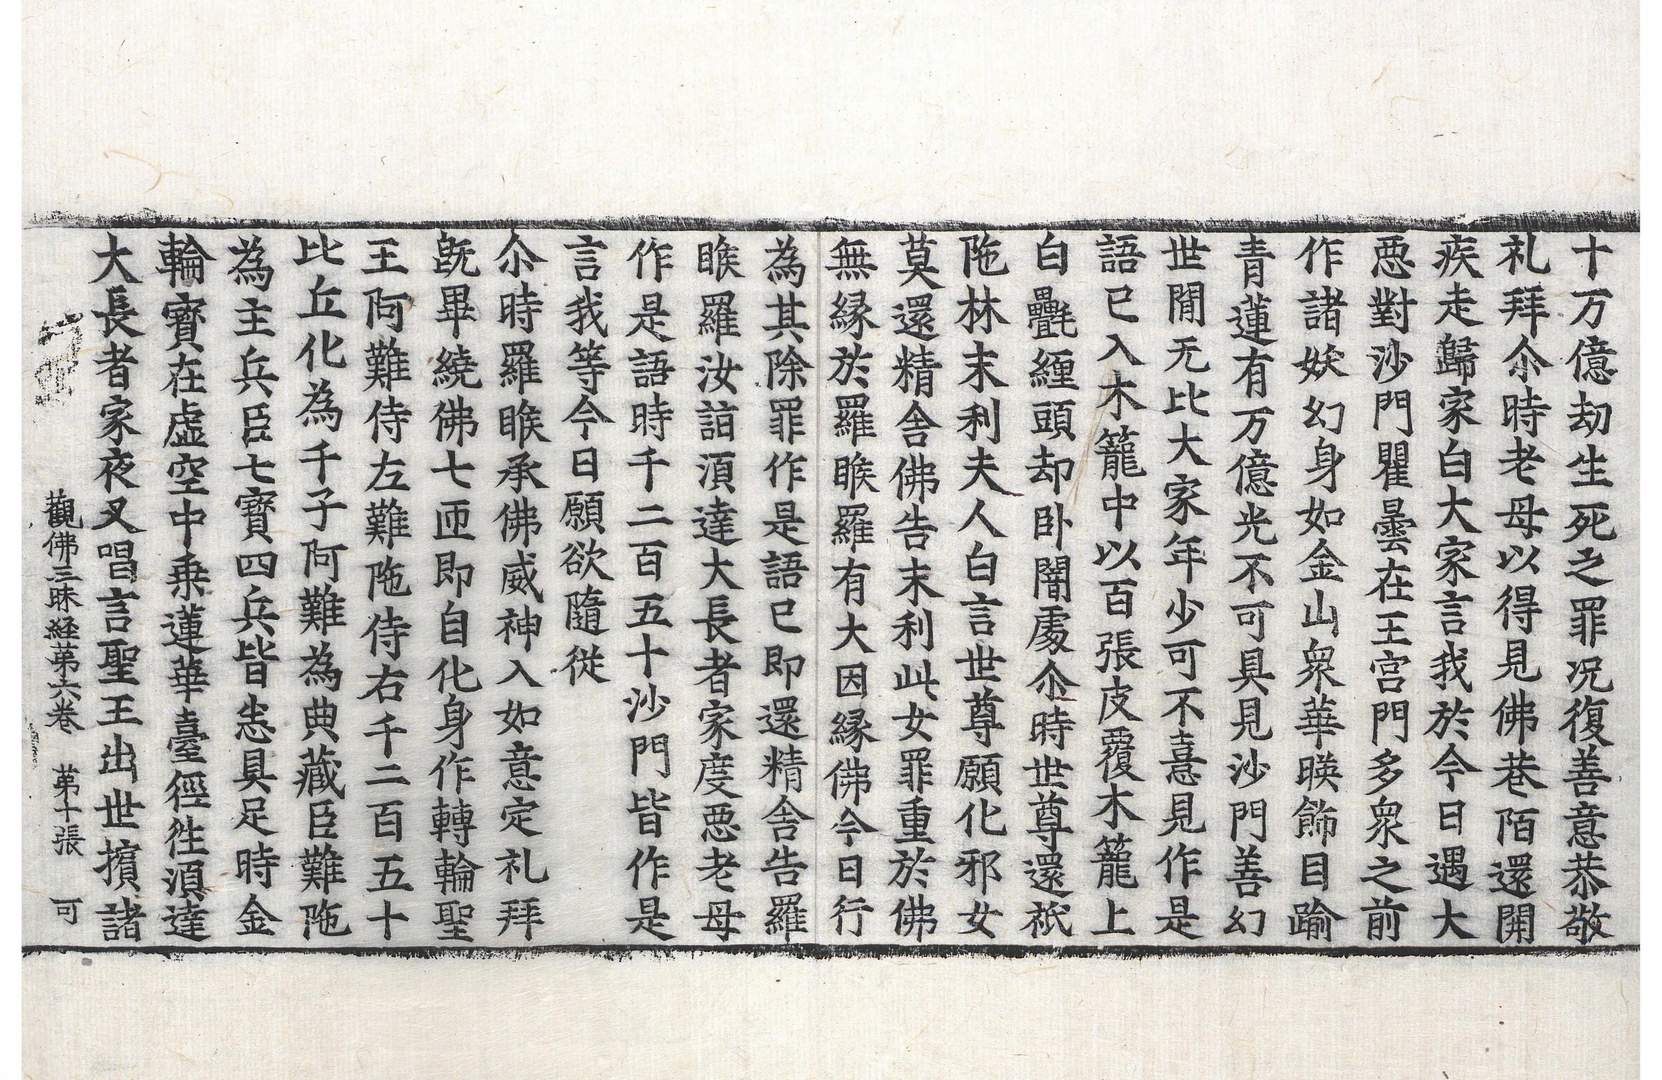 十万億劫生死之罪况復善意恭敬
礼拜尒時老母以得見佛巷陌還開
疾走歸家白大家言我於今日遇大
惡對沙門瞿曇在王宫門多衆之前
作諸妖幻身如金山衆華暎飾目踰
青蓮有万億光不可具見沙門善幻
世間无比大家年少可不憙見作是
語已入木籠中以百張皮覆木籠上
白㲲纏頭却卧闇處尒時世尊還祇
陁林末利夫人白言世尊願化邪女
莫還精舍佛告末利此女罪重於佛
無縁於羅睺羅有大因縁佛今日行
為其除罪作是語已即還精舍告羅
睺羅汝詣湏達大長者家度惡老母
作是語時千二百五十沙門皆作是
言我等今日願欲隨從
尒時羅睺承佛威神入如意定礼拜
既畢繞佛七匝即自化身作轉輪聖
王阿難侍左難陁侍右千二百五十
比丘化為千子阿難為典藏臣難陁
為主兵臣七寶四兵皆悉具足時金
輪寶在虛空中乗蓮華臺徑徃湏達
大長者家夜叉唱言聖王出世擯諸
觀佛三昧経第六卷 第十張 可